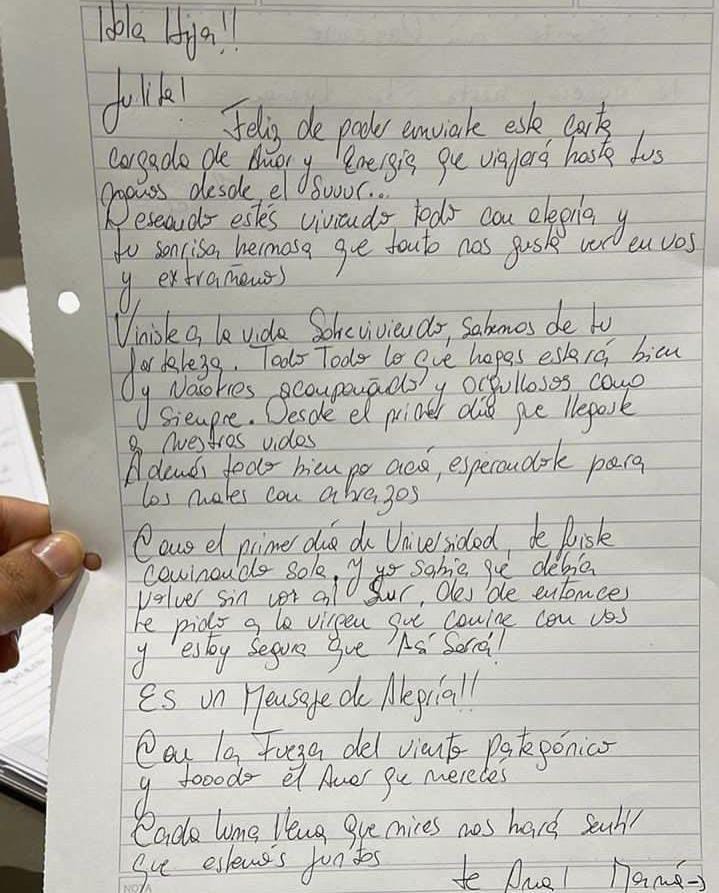 Hola Hija!!
Julita!
Feliz de poder enviarte esta carta
cargada de Amor y Energía que viajará hasta tus
manos desde el Suuur...
Deseando estés viviendo todo con alegría y
tu sonrisa hermosa que tanto nos gusta ver en vos
y extrañamos
Viniste a la vida Sobreviviendo, Sabemos de tu
fortaleza. Todo Todo lo que hagas estará bien
y Nosotros acompañando y orgullosos como
siempre. Desde el primer día que llegaste
a nuestras vidas
Además todo bien po acá, esperandote para
los mates con abrazos
Como el primer día de Universidad, te fuiste
caminando sola, y yo sabía que debía
volver sin vos al Sur, desde entonces
le pido a la virgen que camine con vos
y estoy segura que Así Será!
Es un Mensaje de Alegría!!
Con la Fuerza del viento Patagónico
y tooodo el Amor que mereces
Cada luna llena que mires nos hará sentir
que estamos juntos
te Ama! Mamá
NOTA